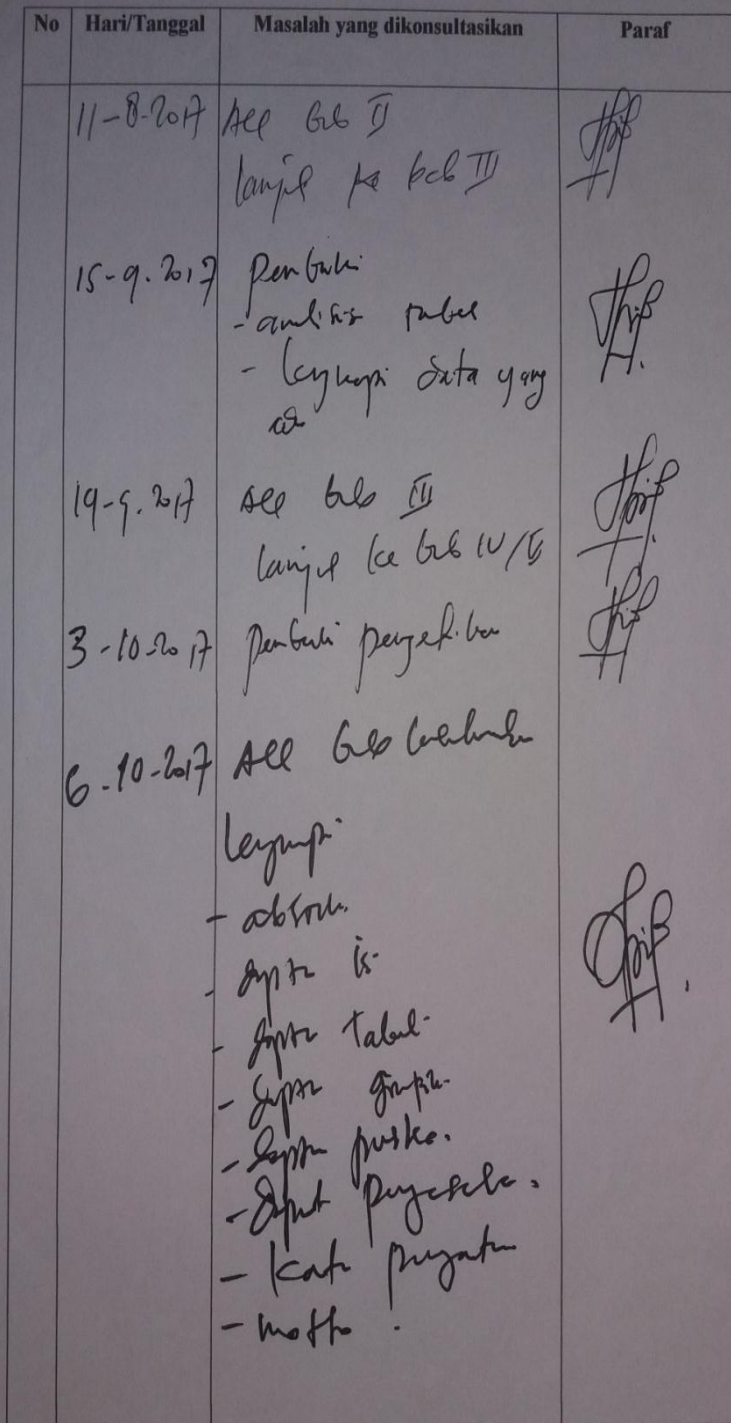 No Hari/Tanggal Masalah yang dikonsultasikan Paraf
11-8-2017 Acc bab II
lanjut ke bab III
15-9-2017 Perbaiki
- analisis tabel
- lengkapi data yang
ada
19-9-2017 Acc bab III
lanjut ke bab IV/V
3-10-2017 Perbaiki pengetikan
6-10-2017 Acc bab
lengkapi
- abstrak
- daftar isi
- daftar tabel
- daftar grafik
- daftar pustaka
- kata pengantar
- motto